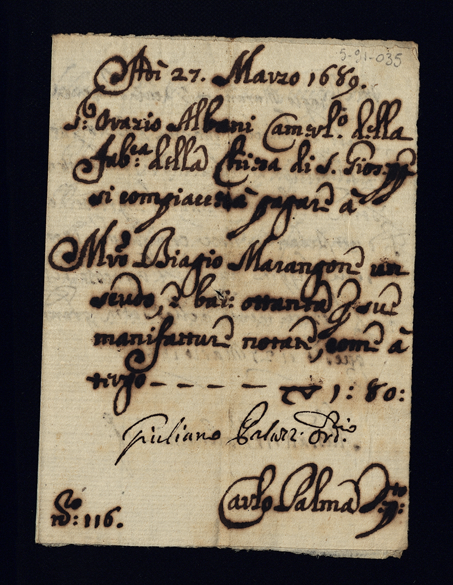 5-91-035
Adì 27. Marzo 1689.
S.r Orazio Albani Camerl.o della
fab.ca della Chiesa di S. Gios.
si compiacerà pagare à
Mro Biagio Marangone un
scudo, è bai: ottanta p sue
manifatture notate, come à
tergo — — — — — 1: 80:
Giuliano
Carlo Palma
n.ro: 116.